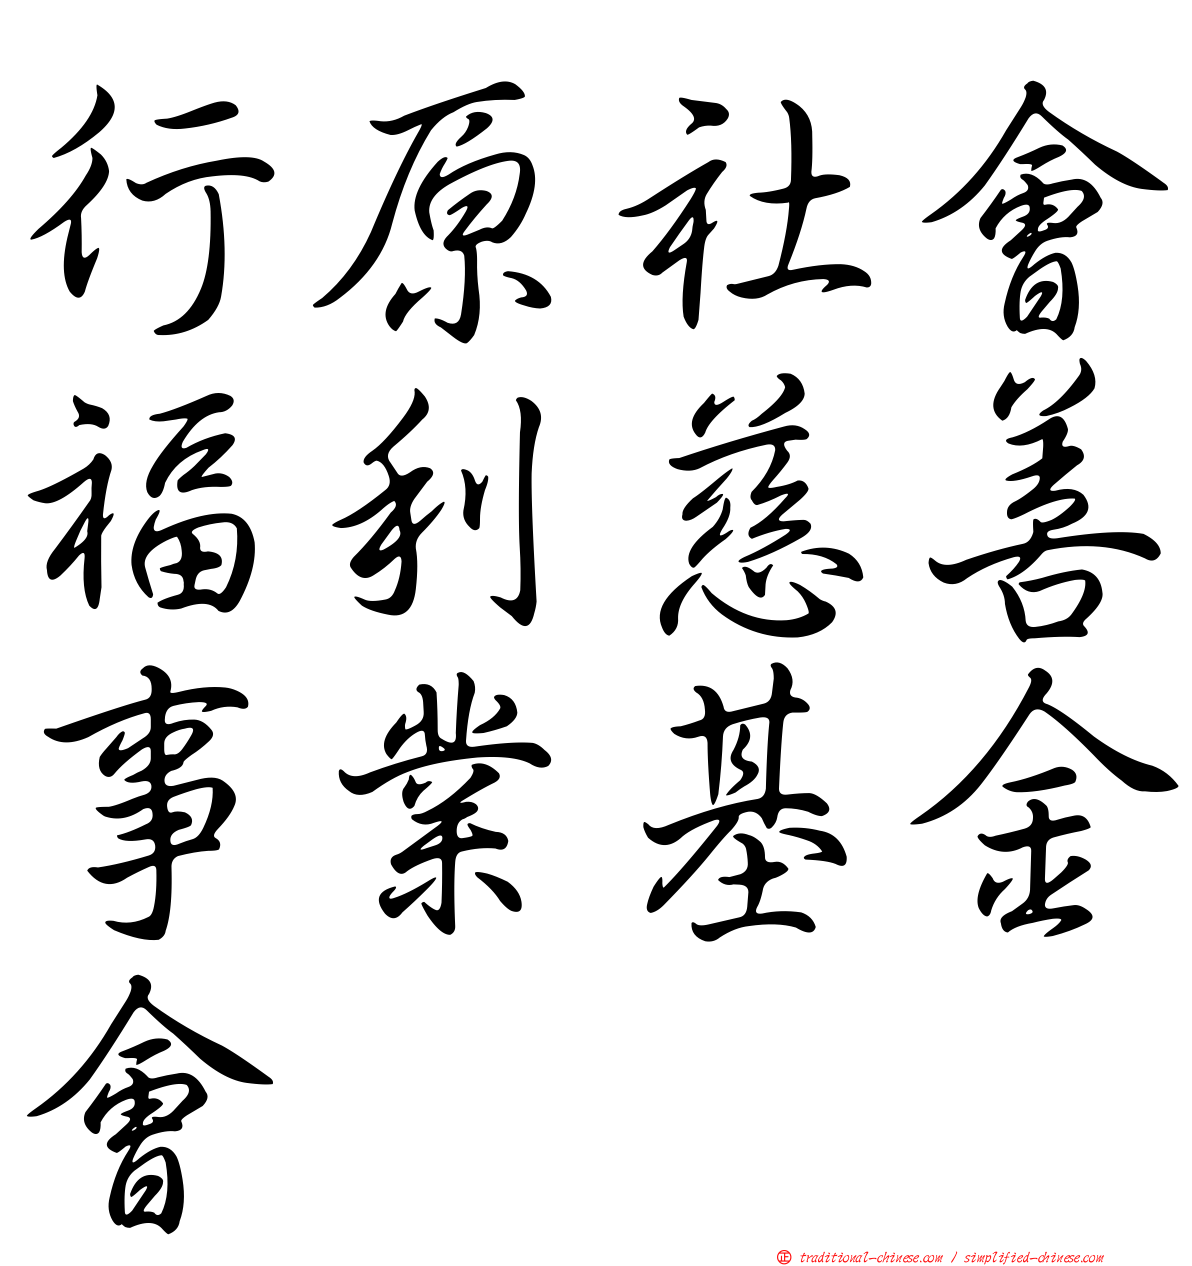 行原社會
福利慈善
事業基金
會
正 traditional-chinese.com / simplified-chinese.com